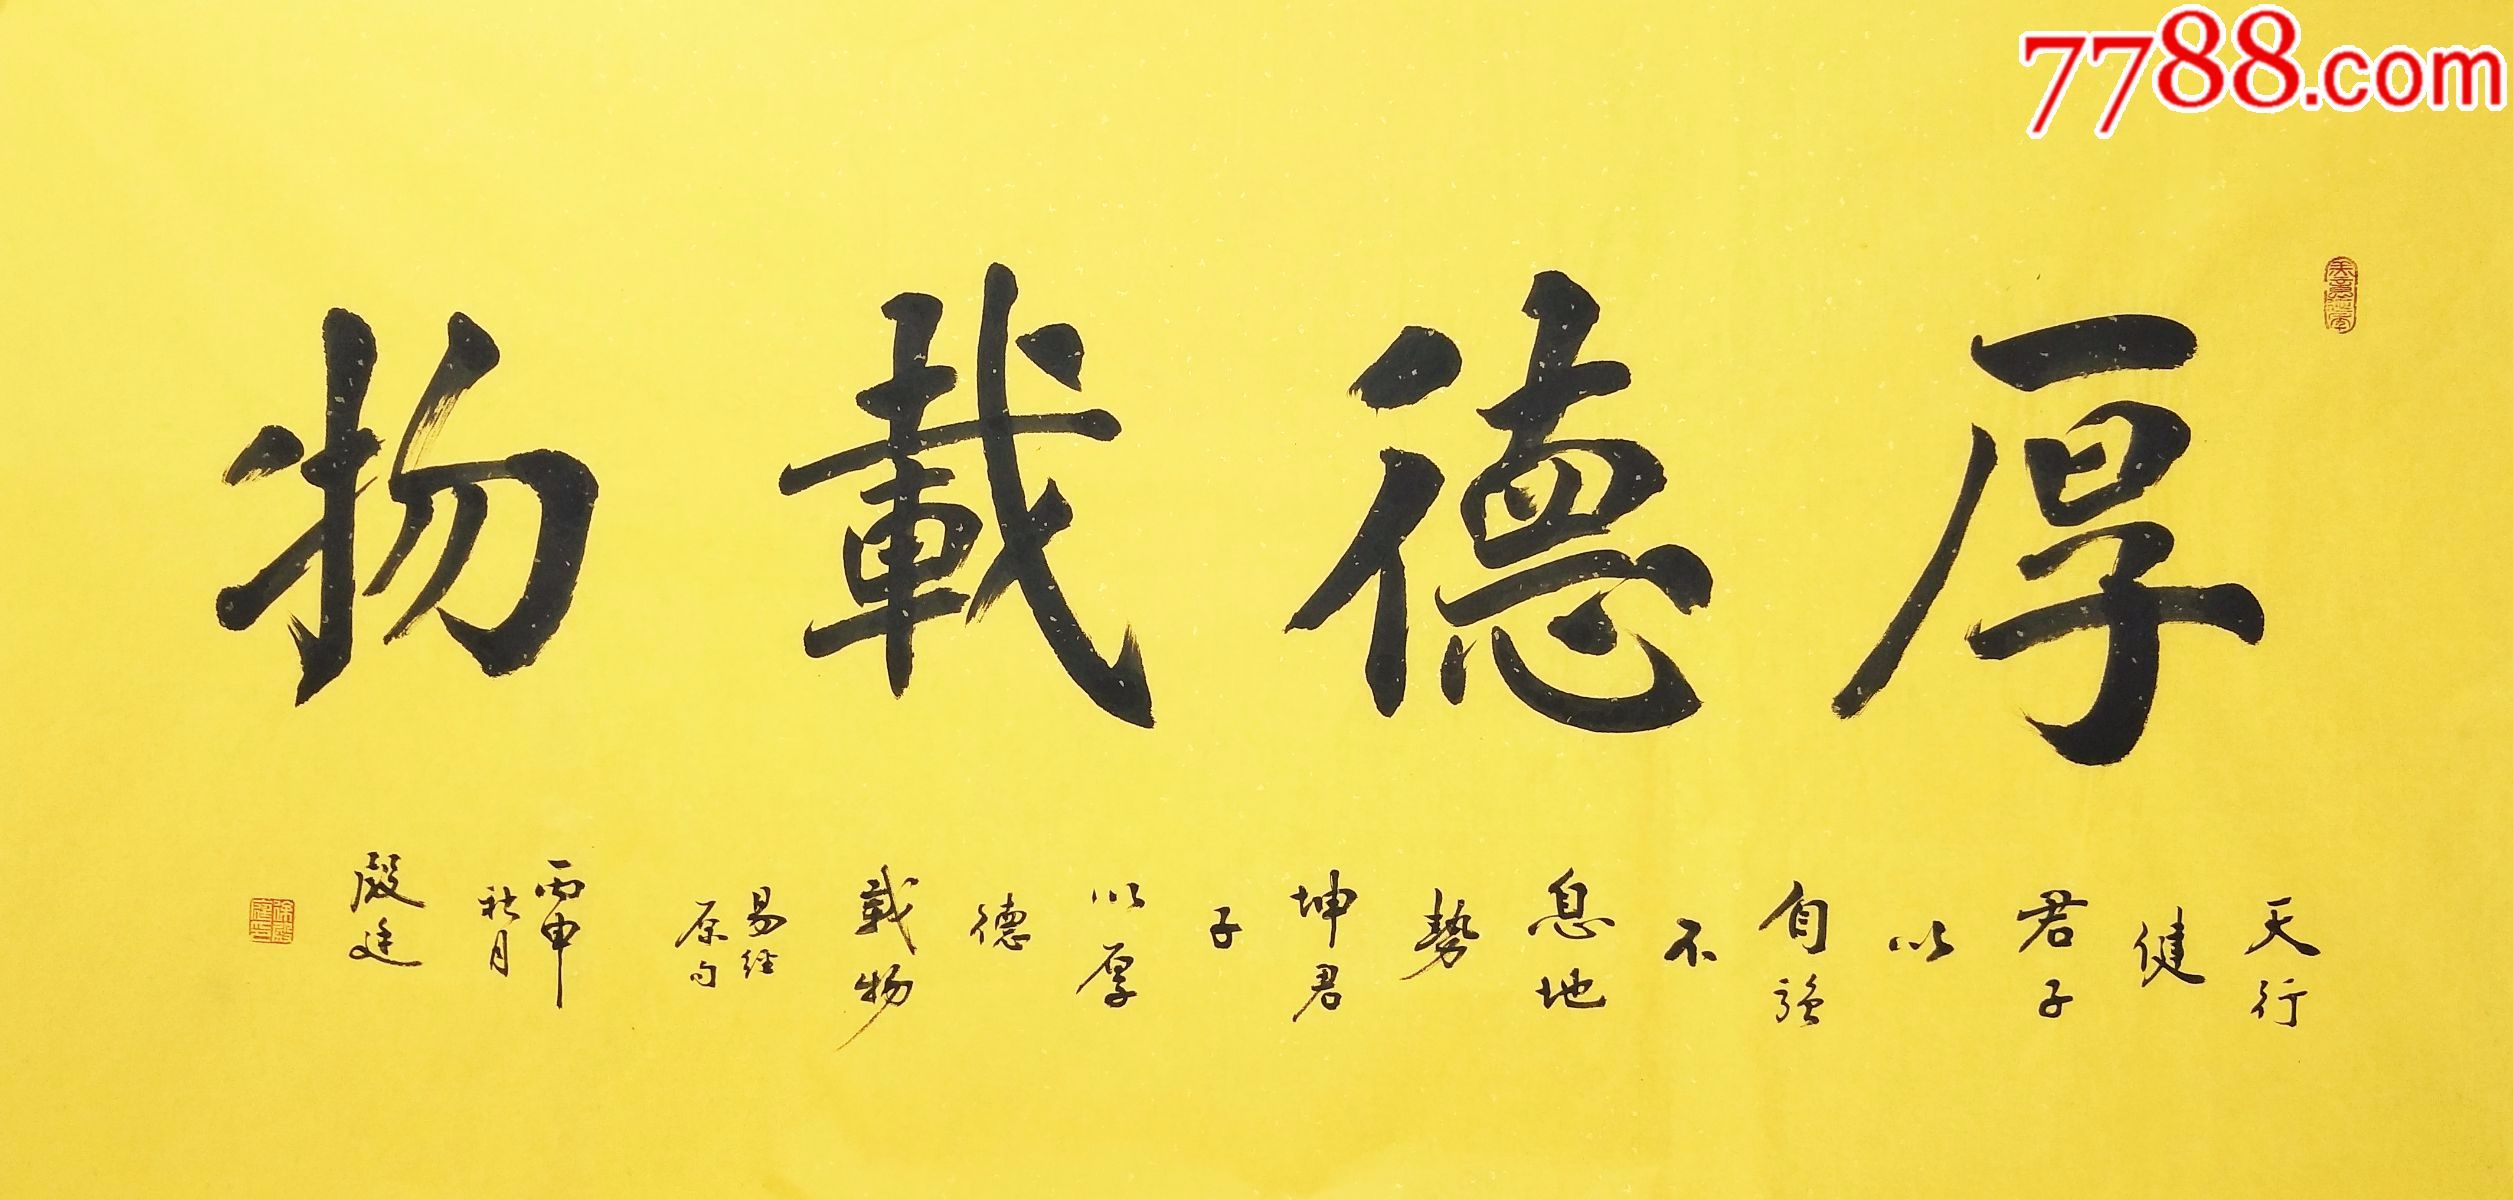 7788.com
厚德載物
天行
健
君子
以
自強
不
息地
勢
坤君
子
以厚
德
載物
易经
原句
丙申
秋月
殿廷